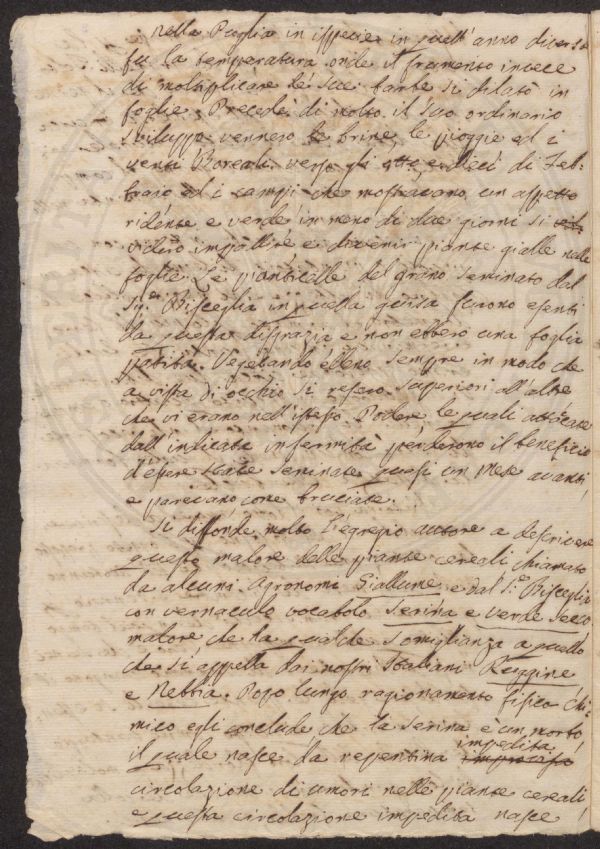 Nella Puglia in ispecie in quell'anno diversa
fu la temperatura onde il frumento invece
di moltiplicare le sue barbe si dilatò in
foglie. Precedè di molto il suo ordinario
sviluppo vennero le brine, le pioggie ed i
venti Boreali verso gli otto e dieci di Feb:
braio ed i campi che mostravano un aspetto
ridente e verde in meno di due giorni si
videro impallire e divenir piante gialle nelle
foglie. Le pianticelle del grano seminato dal
Sig.r Bisceglia in quella guisa furono esenti
da questa disgrazia e non ebbero una foglia
patita. Vegetando elleno sempre in modo che
a vista di occhio si resero superiori all'altre
che vi erano nell'istesso Podere le quali attaccate
dall'indicata infermità perderono il beneficio
d'essere state seminate quasi un Mese avanti,
e parevano come bruciate.
Si diffonde molto l'egregio autore a descrivere
questo malore delle piante cereali chiamato
da alcuni Agronomi Giallume e dal S.r Bisceglia
con vernaculo vocabolo Serina e verde secco
malore che ha qualche somiglianza a quello
che si appella dai nostri Italiani Ruggine
e Nebbia. Dopo lungo ragionamento fisico chi:
mico egli conclude che la Serina è un morbo,
il quale nasce da repentina impedita
circolazione di umori nelle piante cereali,
e questa circolazione impedita nasce